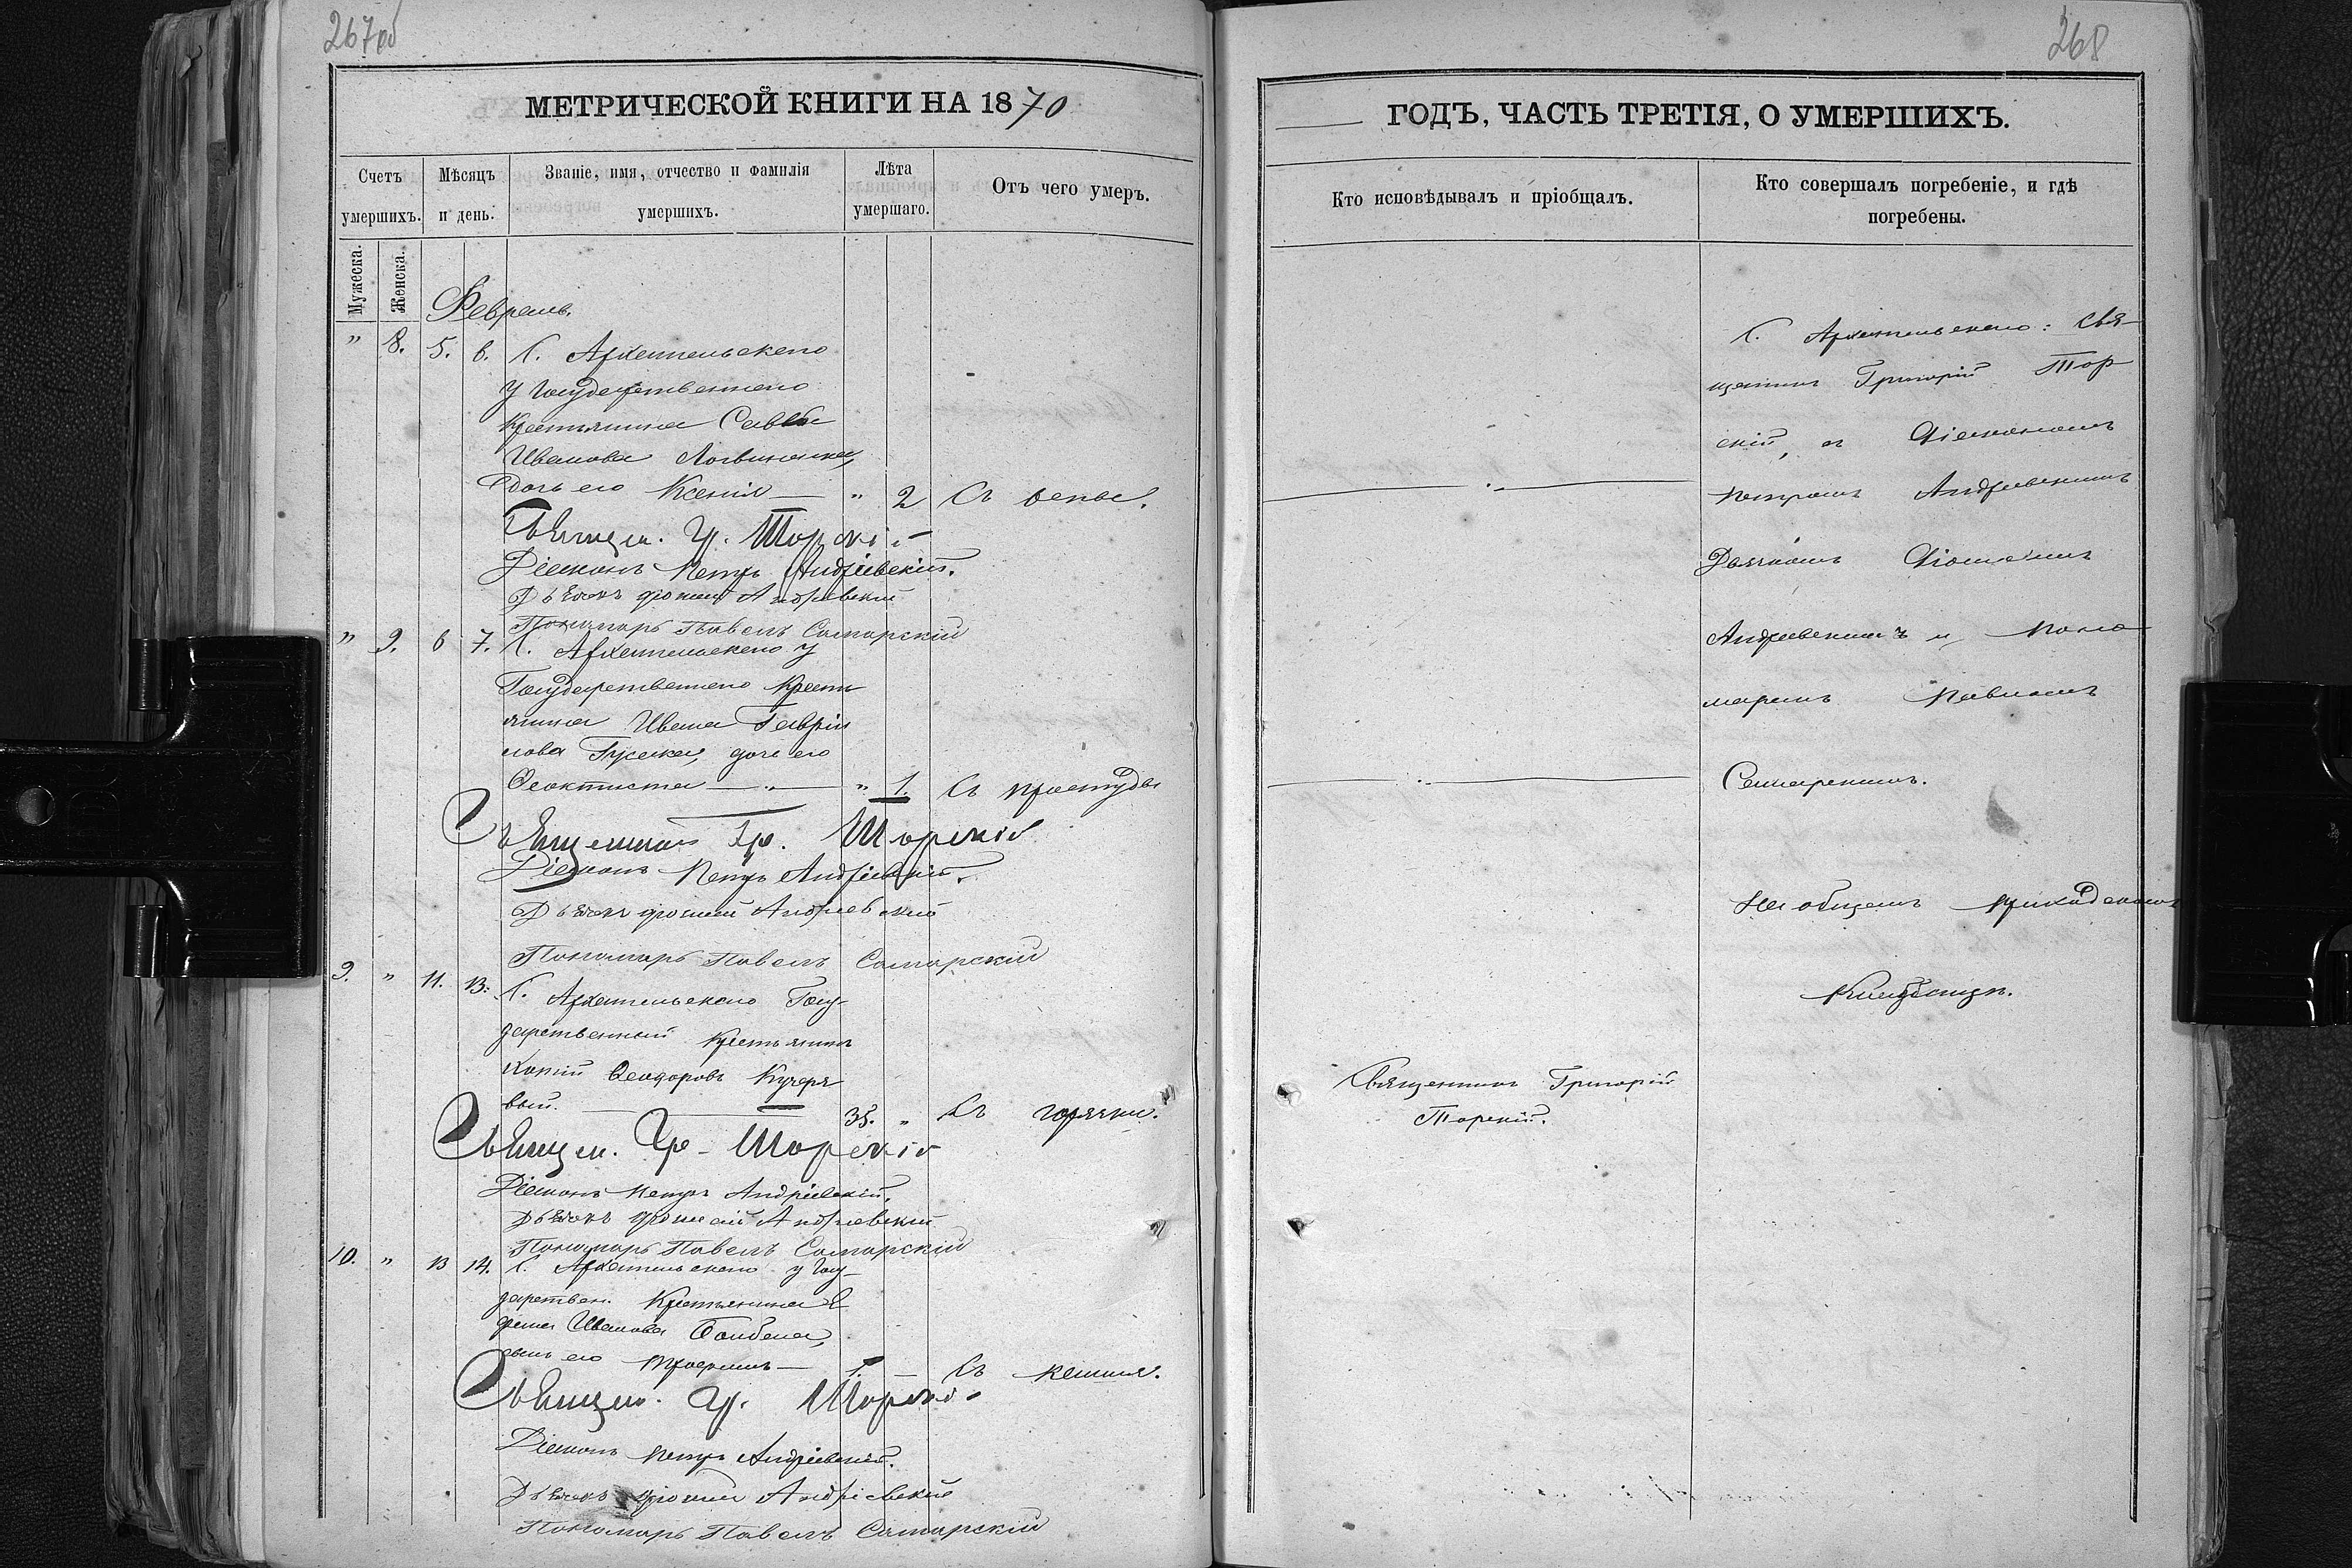 267об
МЕТРИЧЕСКОЙ КНИГИ НА 1870
Счетъ умершихъ.
Мѣсяцъ и день.
Званіе, имя, отчество и фамилія умершихъ.
Лѣта умершаго.
Отъ чего умеръ.
Мужеска.
Женска.
Февраль.
" 8. 5. 6. С. Архангельскаго
у Государственнаго
крестьянина Саввы
Иванова
дочь его Ксенія — " 2 Съ оспы.
Священ. Гр. Торскій
Діаконъ Петръ Андріевскій.
Дьячокъ Діомидъ Андріевскій
Пономарь Павелъ Самарскій
" 9. 6 7. С. Архангельскаго у
Государственнаго крестъ
янина Ивана Гаврiи
лова дочь его
Ѳеоктиста — " — " 1. Съ простуды
Священникъ Гр. Торскій
Діаконъ Петръ Андріевскій.
Дьячокъ Діомидъ Андріевскій
Пономарь Павелъ Самарскій
9. " 11. 13. С. Архангельскаго Госу-
дарственный крестьянинъ
Ѳеодоровъ Кучеря
вый. — 35. " Съ горячки.
Священ. Гр. Торскій
Діаконъ Петръ Андріевскій.
Дьячокъ Андріевскій
Пономарь Павелъ Самарскій
10. " 13 14. С. Архангельскаго у Госу-
дарствен. крестьянина Е
фима Иванова
сынъ его — 1. — Съ кашля.
Священ. Гр. Торскій
Діаконъ Петръ Андріевскій.
Дьячокъ Андріевскій
Пономарь Павелъ Самарскій
268
ГОДЪ, ЧАСТЬ ТРЕТІЯ, О УМЕРШИХЪ.
Кто исповѣдывалъ и пріобщалъ.
Кто совершалъ погребеніе, и гдѣ погребены.
С. Архангельскаго: Свя-
щенникъ Григорій Тор
скій, съ Діакономъ
Петромъ Андріевскимъ
Дьячкомъ Діомидомъ
Андріевскимъ и Поно
маремъ Павломъ
Самарскимъ.
На общемъ приходскомъ
кладбищѣ.
Священникъ Григорій
Торскій.